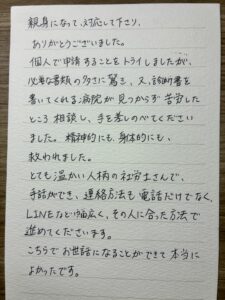 親身になって、対応して下さり、
ありがとうございました。
個人で申請することをトライしましたが、
必要な書類の多さに驚き、又、診断書を
書いてくれる病院が見つからず苦労した
ところ相談し、手を差しのべてください
ました。精神的にも、身体的にも、
救われました。
とても温かい人柄の社労士さんで、
手話ができ、連絡方法も電話だけでなく、
LINEなど幅広く、その人に合った方法で
進めてくださいます。
こちらでお世話になることができて本当に
よかったです。